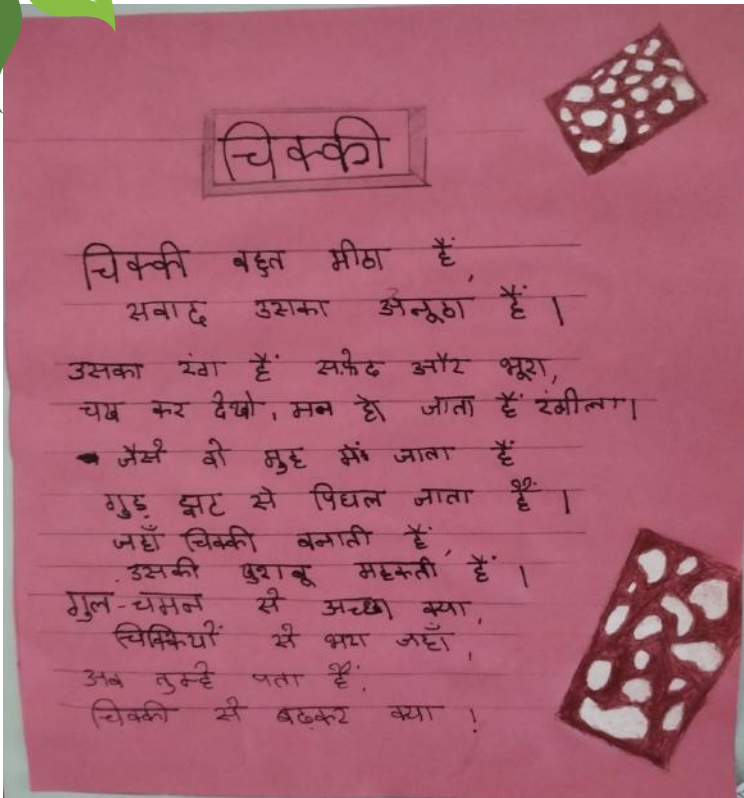 चिक्की
चिक्की बहुत मीठा हैं,
सवाद उसका अनूठा हैं।
उसका रंग हैं सफ़ेद और भूरा,
चख कर देखो, मन हो जाता हैं रंगीला।
जैसे वो मुह में जाता हैं
गुड़ झट से पिघल जाता हैं।
जहाँ चिक्की बनाती हैं,
उसकी खुशबू महकती हैं।
गुल-चमन से अच्छा क्या,
चिक्कियों से भरा जहाँ,
अब तुम्हे पता हैं,
चिक्की से बढ़कर क्या !